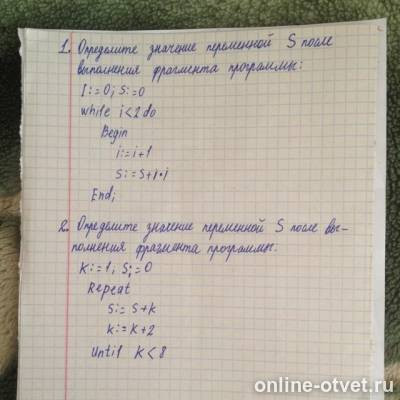 1. Определите значение переменной S после
выполнения фрагмента программы:
I:=0; S:=0
while i<2 do
Begin
i:=i+1
S:=S+i*i
End;
2. Определите значение переменной S после вы-
полнения фрагмента программы.
K:=1; S:=0
Repeat
S:=S+k
k:=k+2
Until k<8
online-otvet.ru